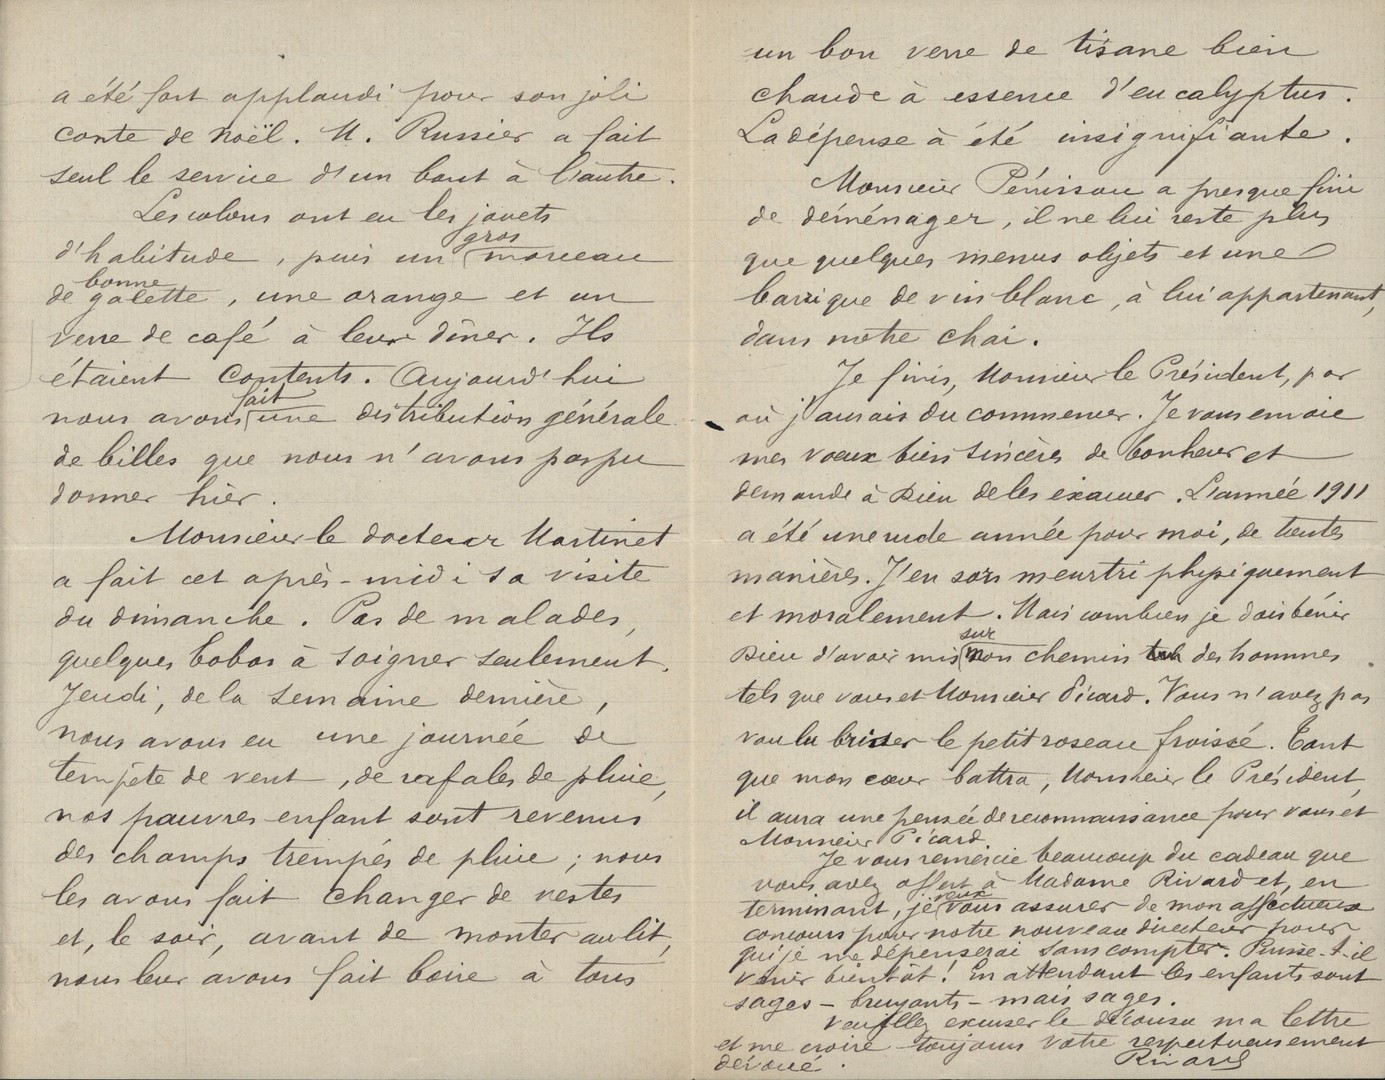 a été fort applaudi pour son joli
conte de Noël. M. Russier a fait
seul le service d'un bout à l'autre.
Les colons ont eu les jouets
d'habitude, puis un gros morceau
de bonne galette, une orange et un
verre de café à leur dîner. Ils
étaient contents. Aujourd'hui
nous avons fait une distribution générale
de billes que nous n'avons pas pu
donner hier.
Monsieur le docteur Martinet
a fait cet après-midi sa visite
du dimanche. Pas de malades,
quelques bobos à soigner seulement.
Jeudi, de la semaine dernière,
nous avons eu une journée de
tempête de vent, de rafales de pluie,
nos pauvres enfant sont revenus
des champs trempés de pluie ; nous
les avons fait changer de vestes
et, le soir, avant de monter au lit,
nous leur avons fait boire à tous
un bon verre de tisane bien
chaude à essence d'eucalyptus.
La dépense à été insignifiante.
Monsieur Pénissou a presque fini
de déménager, il ne lui reste plus
que quelques menus objets et une
barrique de vin blanc, à lui appartenant,
dans notre chai.
Je finis, Monsieur le Président, par
où j'aurais du commencer. Je vous envoie
mes voeux bien sincères de bonheur et
demande à Dieu de les exaucer. L'année 1911
a été une rude année pour moi, de toutes
manières. J'en sors meurtri physiquement
et moralement. Mais combien je dois bénir
Dieu d'avoir mis sur mon chemin des hommes
tels que vous et Monsieur Picard. Vous n'avez pas
voulu briser le petit roseau froissé. Tant
que mon coeur battra, Monsieur le Président,
il aura une pensée de reconnaissance pour vous et
Monsieur Picard.
Je vous remercie beaucoup du cadeau que
vous avez offert à Madame Rivard et, en
terminant, je veux vous assurer de mon affectueux
concours pour notre nouveau directeur pour
qui je me dépenserai sans compter. Puisse-t-il
venir bientôt ! En attendant les enfants sont
sages - bruyants - mais sages.
Veuillez excuser le décousu ma lettre
et me croire toujours votre respectueusement
dévoué.
Rivard